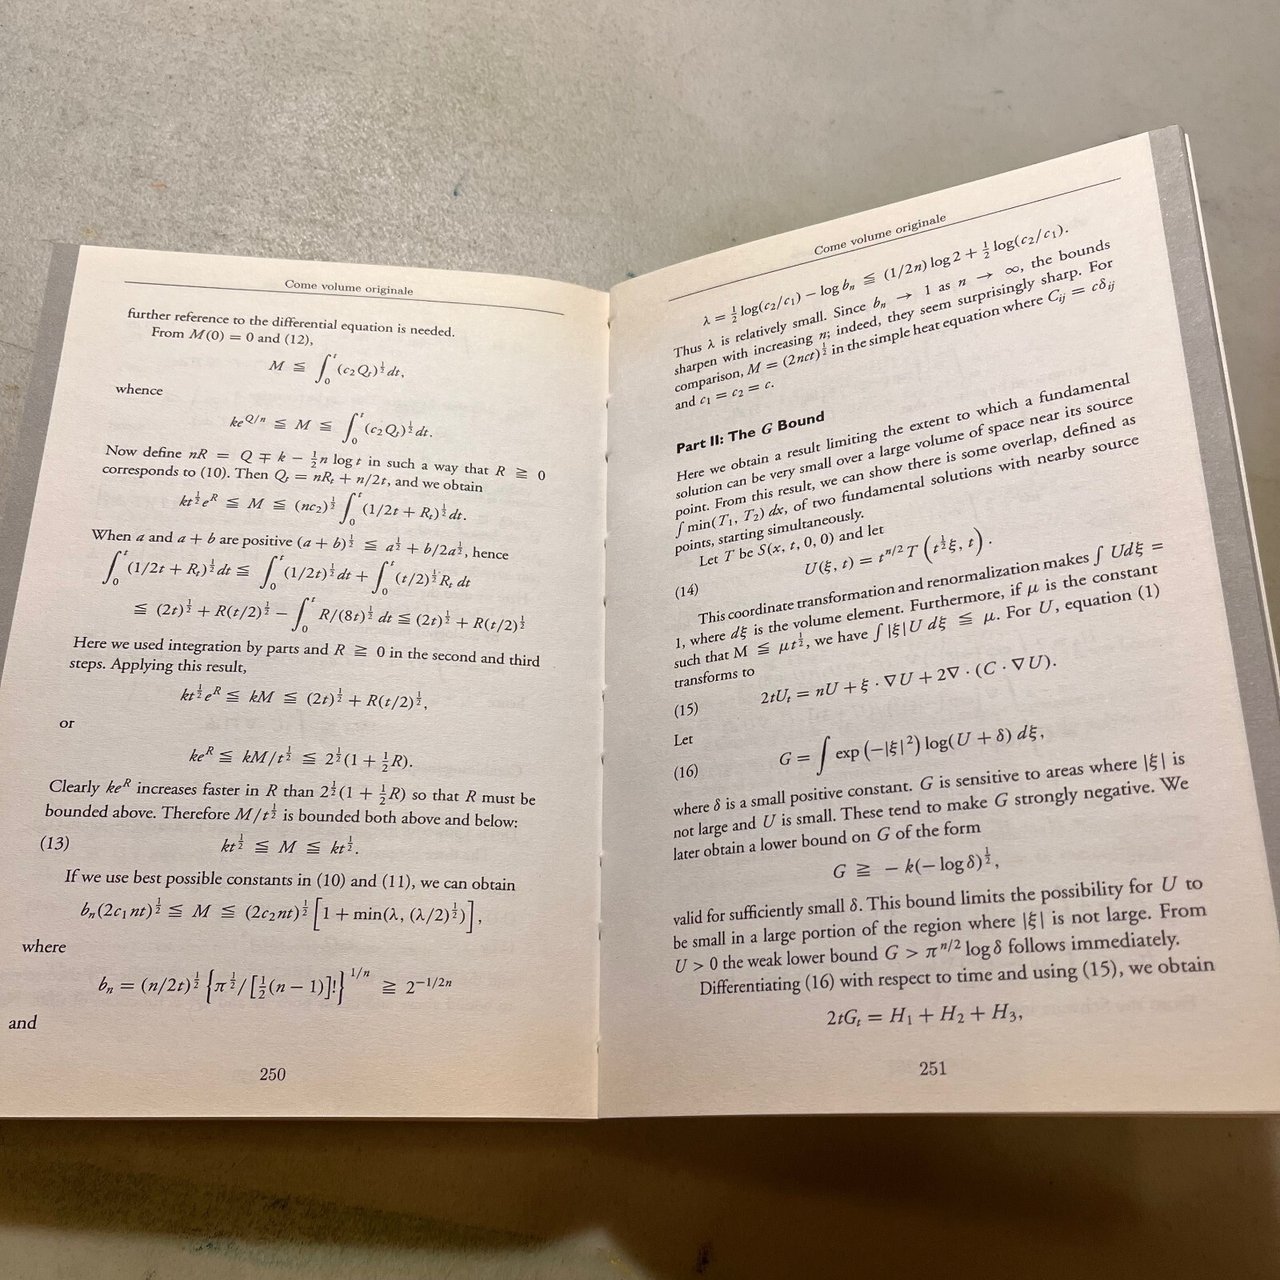 Come volume originale
further reference to the differential equation is needed.
From M(0) = 0 and (12),
M ≦ ∫₀ᵗ (c₂Qₜ)^½ dt,
whence
ke^{Q/n} ≦ M ≦ ∫₀ᵗ (c₂Qₜ)^½ dt.
Now define nR = Q ∓ k − ½n log t in such a way that R ≧ 0
corresponds to (10). Then Qₜ = nRₜ + n/2t, and we obtain
kt^½ e^R ≦ M ≦ (nc₂)^½ ∫₀ᵗ (1/2t + Rₜ)^½ dt.
When a and a + b are positive (a + b)^½ ≦ a^½ + b/2a^½, hence
∫₀ᵗ (1/2t + Rₜ)^½ dt ≦ ∫₀ᵗ (1/2t)^½ dt + ∫₀ᵗ (t/2)^½ Rₜ dt
≦ (2t)^½ + R(t/2)^½ − ∫₀ᵗ R/(8t)^½ dt ≦ (2t)^½ + R(t/2)^½
Here we used integration by parts and R ≧ 0 in the second and third
steps. Applying this result,
kt^½ e^R ≦ kM ≦ (2t)^½ + R(t/2)^½,
or
ke^R ≦ kM/t^½ ≦ 2^½(1 + ½R).
Clearly ke^R increases faster in R than 2^½(1 + ½R) so that R must be
bounded above. Therefore M/t^½ is bounded both above and below:
(13) kt^½ ≦ M ≦ kt^½.
If we use best possible constants in (10) and (11), we can obtain
bₙ(2c₁nt)^½ ≦ M ≦ (2c₂nt)^½ [1 + min(λ, (λ/2)^½)],
where
bₙ = (n/2t)^½ {π^½/[½(n − 1)]!}^{1/n} ≧ 2^{−1/2n}
and
250
Come volume originale
λ = ½ log(c₂/c₁) − log bₙ ≦ (1/2n) log 2 + ½ log(c₂/c₁).
Thus λ is relatively small. Since bₙ → 1 as n → ∞, the bounds
sharpen with increasing n; indeed, they seem surprisingly sharp. For
comparison, M = (2nct)^½ in the simple heat equation where Cᵢⱼ = cδᵢⱼ
and c₁ = c₂ = c.
Part II: The G Bound
Here we obtain a result limiting the extent to which a fundamental
solution can be very small over a large volume of space near its source
point. From this result, we can show there is some overlap, defined as
∫ min(T₁, T₂) dx, of two fundamental solutions with nearby source
points, starting simultaneously.
Let T be S(x, t, 0, 0) and let
(14) U(ξ, t) = t^{n/2} T (t^½ ξ, t) .
This coordinate transformation and renormalization makes ∫ Udξ =
1, where dξ is the volume element. Furthermore, if μ is the constant
such that M ≦ μt^½, we have ∫ |ξ|U dξ ≦ μ. For U, equation (1)
transforms to
(15) 2tUₜ = nU + ξ · ∇U + 2∇ · (C · ∇U).
Let
(16) G = ∫ exp (−|ξ|²) log(U + δ) dξ,
where δ is a small positive constant. G is sensitive to areas where |ξ| is
not large and U is small. These tend to make G strongly negative. We
later obtain a lower bound on G of the form
G ≧ − k(− log δ)^½,
valid for sufficiently small δ. This bound limits the possibility for U to
be small in a large portion of the region where |ξ| is not large. From
U > 0 the weak lower bound G > π^{n/2} log δ follows immediately.
Differentiating (16) with respect to time and using (15), we obtain
2tGₜ = H₁ + H₂ + H₃,
251